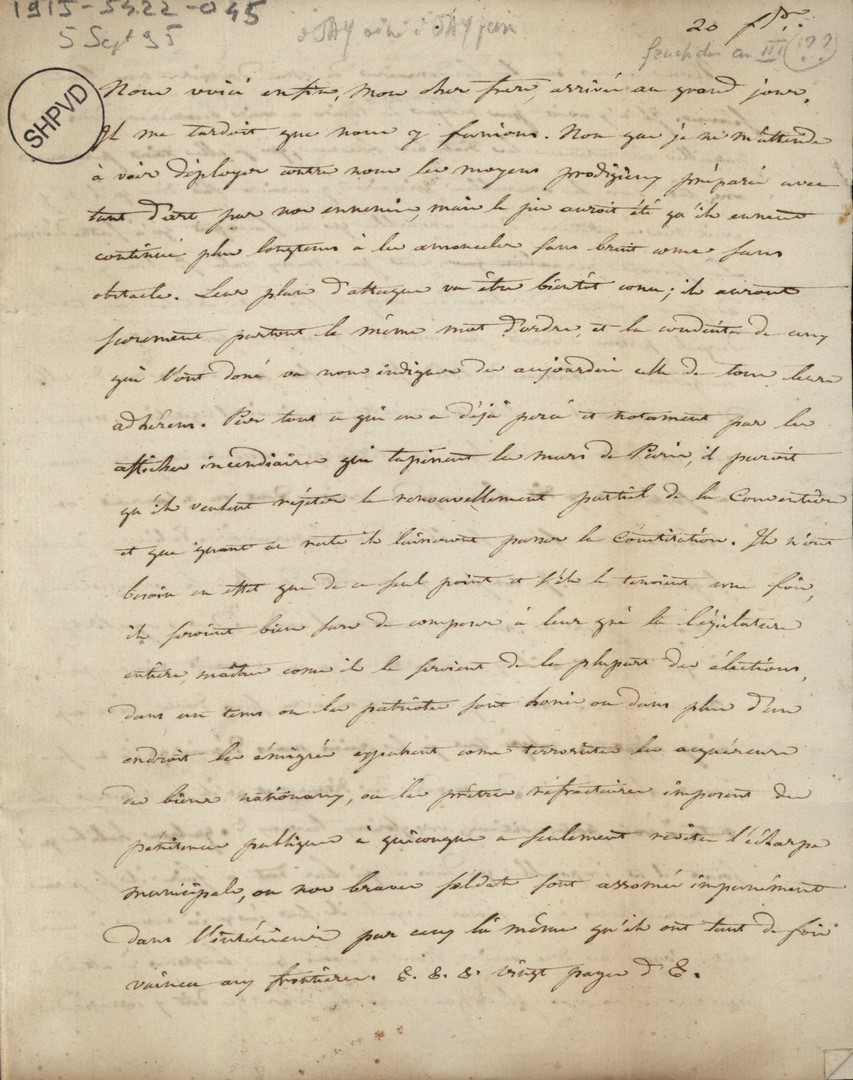 1915-5422-045
5 Sept 95
20 f.dor
fructidor an III (??)
SHPVD
Nous voici enfin, mon cher frere, arrivés au grand jour.
Il me tardoit que nous y fussions. Non que je ne m'attende
à voir déployer contre nous les moyens prodigieux préparés avec
tant d'art par nos ennemis, mais le pis auroit été qu'ils eussent
continué plus longtems à les amonceler sans bruit come sans
obstacle. Leur plan d'attaque va être bientôt conu; ils auront
surement partout le même mot d'ordre, et la conduite de ceux
qui l'ont doné va nous indiquer dès aujourdui celle de tous leurs
adhérens. Par tout ce qui en a déjà percé et notament par les
affiches incendiaires qui tapissent les murs de Paris, il paroit
qu'ils veulent rejeter le renouvellement partiel de la Convention
et que quant au reste ils laisseront passer la Constitution. Ils n'ont
besoin en effet que de ce seul point et s'ils le tenoient une fois,
ils seroient bien surs de composer à leur gré la législature
entière, maîtres come ils le seroient de la plupart des élections,
dans un tems ou les patriotes sont honis, ou dans plus d'un
endroit les émigrés expulsent come terroristes les acquéreurs
de biens nationaux, ou les prêtres réfractaires imposent des
pénitences publiques à quiconque a seulement revêtu l'écharpe
municipale, ou nos braves soldats sont assomés impunément
dans l'intérieur par ceux là même qu'ils ont tant de fois
vaincu aux frontieres. &. &. &. vingt pages d'&.